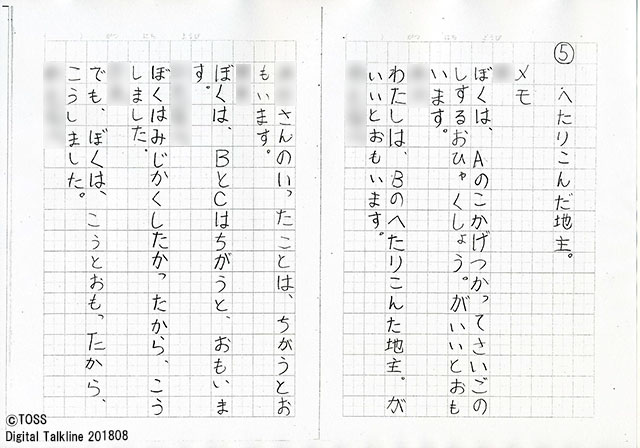 ⑤ へたりこんだ地主。
メモ
ぼくは、Aのこかげつかってさいごの
しするおひゃくしょう。がいいとおも
います。
わたしは、Bのへたりこんた地主。が
いいとおもいます。
さんのいったことは、ちがうとお
もいます。
ぼくは、BとCはちがうと、おもいま
す。
ぼくはみじかくしたかったから、こう
しました。
でも、ぼくは、こうとおもったから、
こうしました。
©TOSS
Digital Talkline 201808